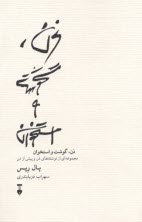 ذن،
گوشت
و
استخوان
ذن، گوشت و استخوان
مجموعه‌ای از نوشته‌های ذن و پیش از ذن
پال رپس
سهراب دریابندری